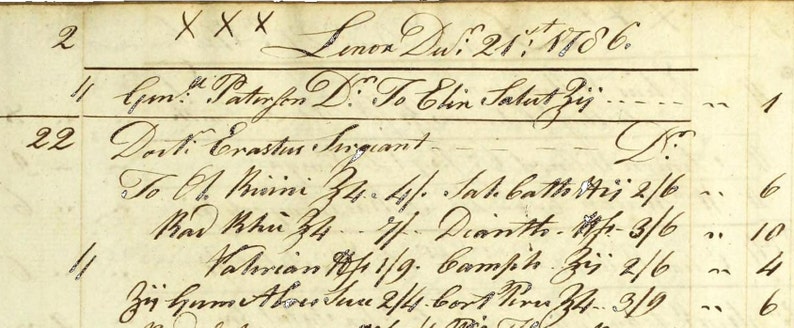 2 XXX Lenox Decr. 21st. 1786.
4 Genll. Paterson Dr. To Elix Salut ℥ij ------ " 1
22 Doctr. Erastus Sergiant - - - - - Dr.
To Ol. Ricini ℥4 .. 4/. Sal. Catto ℔ij 2/6 " 6
Rad Rhü ℥4 .. 7/. Diantho . ℔j . 3/6 " 10
4 Valirian ℔j 1/9. Camph. ℥ij 2/6 " 4
℥ij Gums Aloes Succ 2/4. Cort Peru ℥4 .. 3/9 " 6